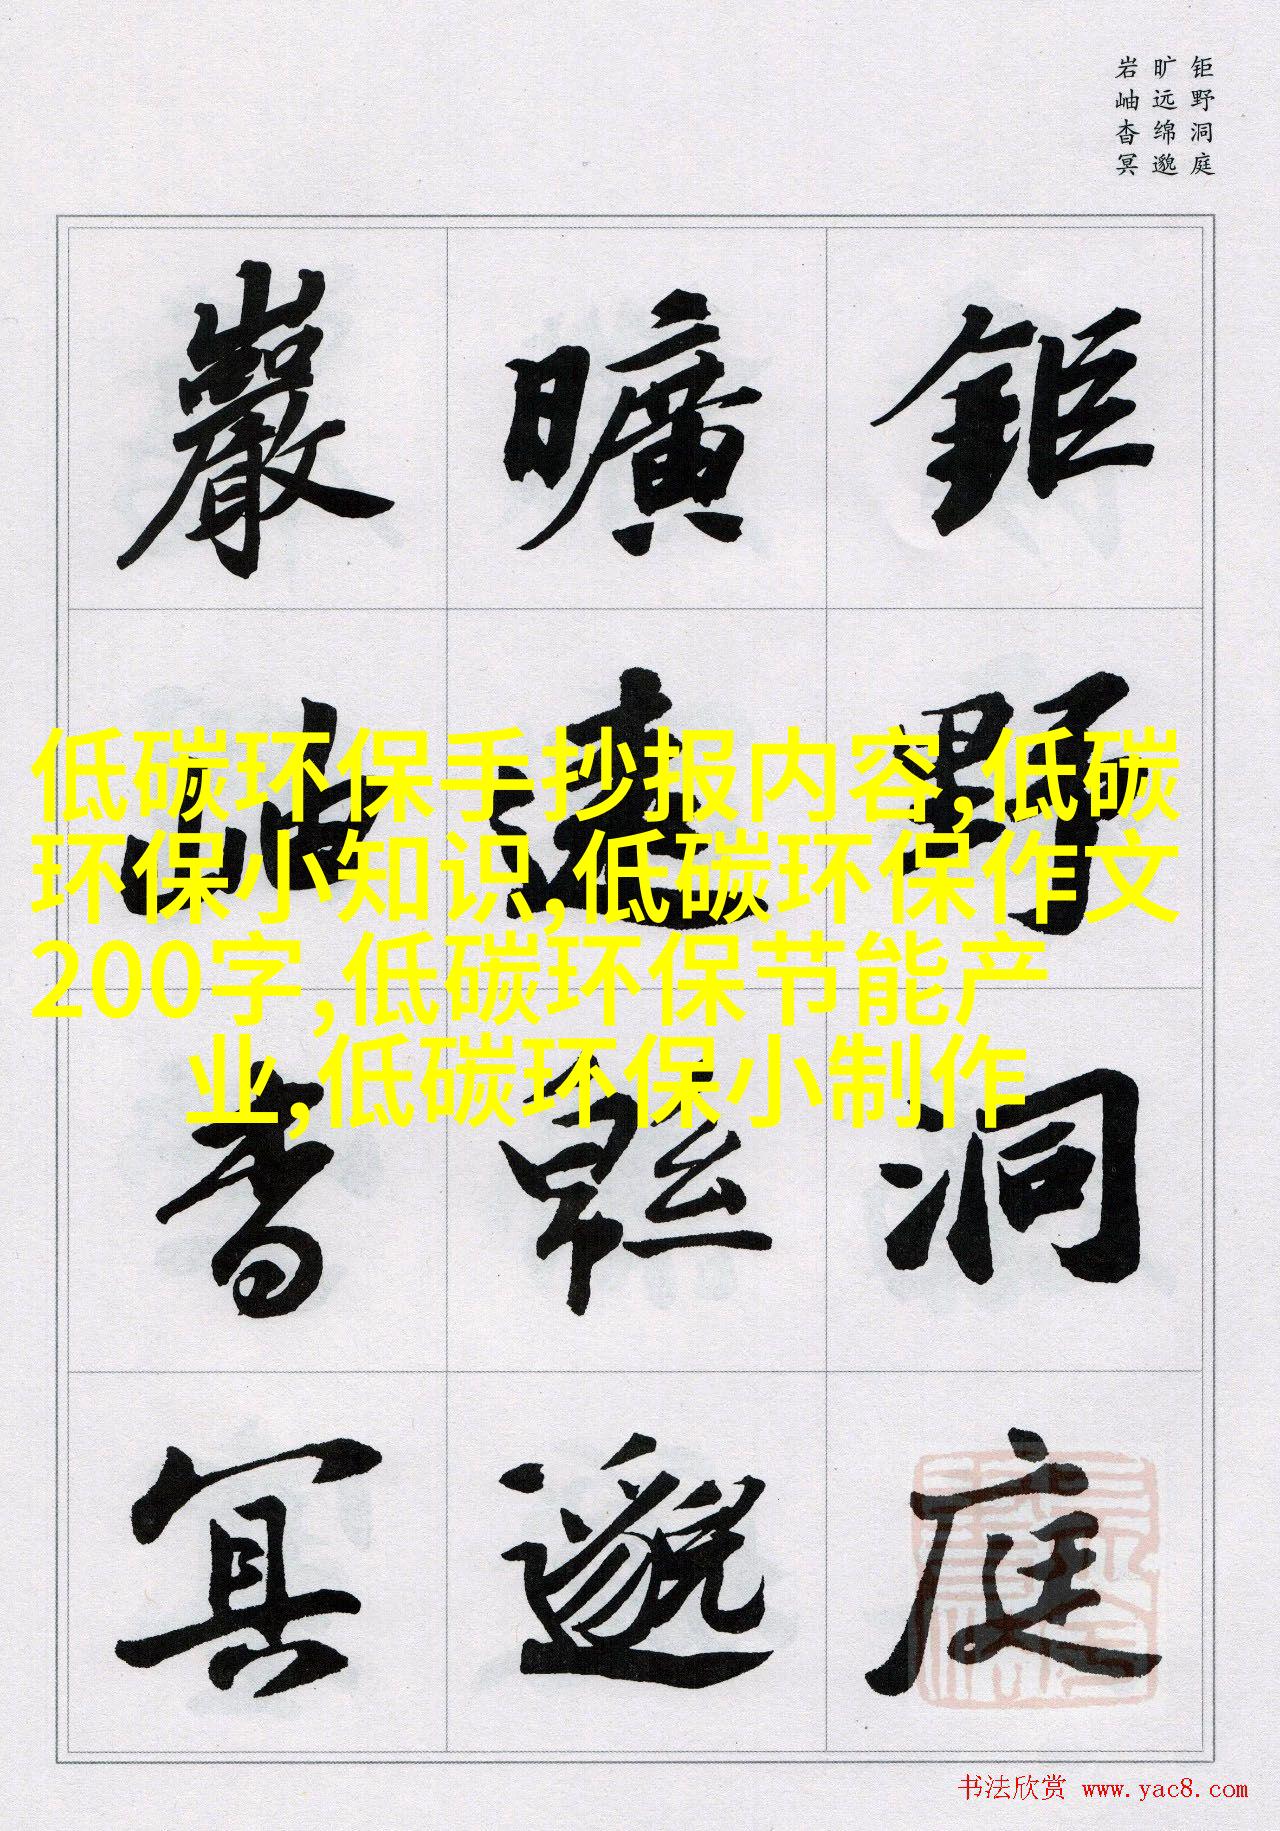 钜野洞庭
旷远绵邈
岩岫杳冥
鉅野洞庭
曠遠緜邈
巖岫杳冥
低碳环保手抄报内容,低碳
环保小知识,低碳环保作文
200字,低碳环保节能产
业,低碳环保小制作
书法欣赏 www.yac8.com